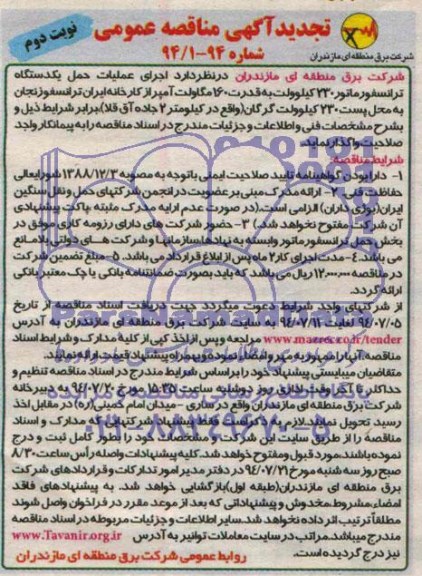 تجدیدآگهی مناقصه عمومی
نوبت دوم
شماره ۹۴-۹۴/۱
شرکت برق منطقه ای مازندران
شرکت برق منطقه ای مازندران درنظردارد اجرای عملیات حمل یکدستگاه
ترانسفورماتور ۲۳۰ کیلوولت به قدرت ۱۶۰ مگاولت آمپر از کارخانه ایران ترانسفورزنجان
به محل پست ۲۳۰ کیلوولت گرگان (واقع در کیلومتر ۲ جاده آق قلا) برابر شرایط ذیل و
بشرح مشخصات فنی و اطلاعات و جزئیات مندرج در اسناد مناقصه را به پیمانکار واجد
صلاحیت واگذار نماید.
شرایط مناقصه:
۱- دارابودن گواهینامه تایید صلاحیت ایمنی باتوجه به مصوبه ۱۳۸۸/۱۲/۳ شورایعالی
حفاظت فنی ۲- ارائه مدرک مبنی بر عضویت در انجمن شرکتهای حمل ونقل سنگین
ایران (بوژی داران) الزامی است. (در صورت عدم ارایه مدرک مثبته پاکت پیشنهادی
آن شرکت مفتوح نخواهد شد.) ۳- حضور شرکت های دارای رزومه کاری موفق در
بخش حمل ترانسفورماتور وابسته به نهادها، سازمانها و شرکت های دولتی بلامانع
می باشد. ۴- مدت اجرای کار ۲ ماه پس از ابلاغ قرارداد می باشد. ۵- مبلغ تضمین شرکت
در مناقصه ۱۲۰.۰۰۰.۰۰۰ ریال می باشد که باید بصورت ضمانتنامه بانکی یا چک معتبر بانکی
ارائه گردد.
از شرکتهای واجد شرایط دعوت میگردد جهت دریافت اسناد مناقصه از تاریخ
۹۴/۰۷/۰۵ لغایت ۹۴/۰۷/۱۲ به سایت شرکت برق منطقه ای مازندران به آدرس
www.mazrec.co.ir/tender مراجعه و پس از اخذ کپی از کلیه مدارک و شرایط اسناد
مناقصه، آنها را ممهور به مهر و امضاء نموده و بهمراه پیشنهاد قیمت ارائه نمایند.
متقاضیان میبایستی پیشنهاد خود را بر اساس شرایط مندرج در اسناد مناقصه تنظیم و
حداکثر تا آخر وقت اداری روز دوشنبه ساعت ۱۵:۳۵ مورخ ۹۴/۰۷/۲۰ به دبیرخانه
شرکت برق منطقه ای مازندران واقع در ساری - میدان امام خمینی(ره) در مقابل اخذ
رسید تحویل نمایند. لازم به ذکر است فقط پیشنهاد شرکتهائی که مدارک و اسناد
مناقصه را از طریق سایت این شرکت و مشخصات خود را بطور کامل ثبت و درج
نموده باشند مورد قبول و مفتوح خواهد شد. کلیه پیشنهادات واصله رأس ساعت ۸/۳۰
صبح روز سه شنبه مورخ ۹۴/۰۷/۲۱ در دفتر مدیر امور تدارکات و قراردادهای شرکت
برق منطقه ای مازندران (طبقه اول) بازگشایی خواهد شد. به پیشنهادهای فاقد
امضاء، مشروط، مخدوش و پیشنهاداتی که بعد از موعد مقرر در فراخوان واصل شوند
مطلقاً ترتیب اثر داده نخواهد شد. سایر اطلاعات و جزئیات مربوطه در اسناد مناقصه
مندرج میباشد. مراتب در سایت معاملات توانیر به آدرس www.Tavanir.org.ir
نیز درج گردیده است.
روابط عمومی شرکت برق منطقه ای مازندران